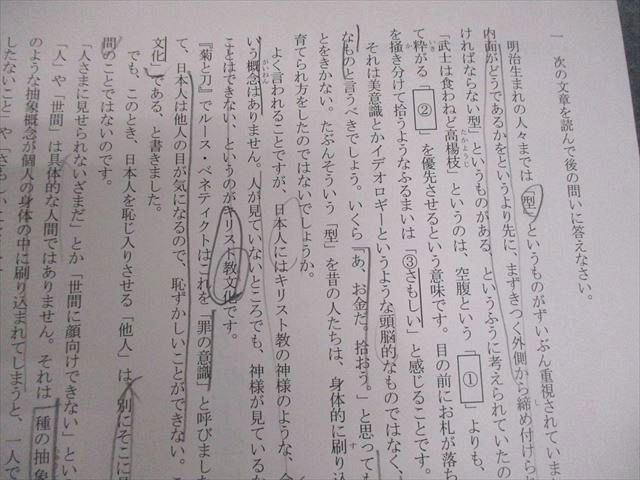 一　次の文章を読んで後の問いに答えなさい。
明治生まれの人々までは「型」というものがずいぶん重視されていま
内面がどうであるかをというより先に、まずきつく外側から締め付けら
ければならない型」というものがある、というふうに考えられていたの
「武士は食わねど高楊枝」というのは、空腹という「①」よりも、
て粋がる「②」を優先させるという意味です。目の前にお札が落ち
を掻き分けて拾うようなふるまいは「③さもしい」と感じることです。
それは美意識とかイデオロギーというような頭脳的なものではなく、
なものと言うべきでしょう。いくら「あ、お金だ。拾おう。」と思っても
とをきかない。たぶんそういう「型」を昔の人たちは、身体的に刷り込
育てられ方をしたのではないでしょうか。
よく言われることですが、日本人にはキリスト教の神様のような、
いう概念はありません。人が見ていないところでも、神様が見ているか
ことはできない、というのがキリスト教文化です。
『菊と刀』でルース・ベネディクトはこれを「罪の意識」と呼びまし
て、日本人は他人の目が気になるので、恥ずかしいことができない。
文化」である、と書きました。
でも、このとき、日本人を恥じ入りさせる「他人」は、別にそこに
間のことではないのです。
「人さまに見せられないざまだ」とか「世間に顔向けできない」とい
「人」や「世間」は具体的な人間ではありません。それは一種の抽象
のような抽象概念が個人の身体の中に刷り込まれてしまうと、一人で
したないこと」や「さもしいこと